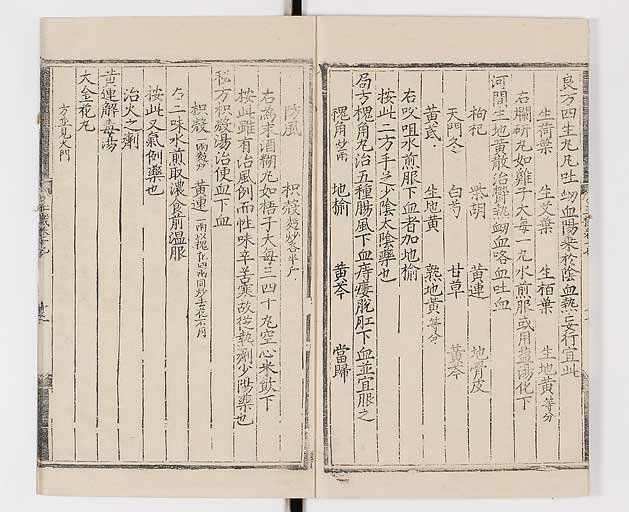 良方四生丸凡吐衂血陽乘於陰血熱妄行宜此
生荷葉 生艾葉 生栢葉 生地黃等分
右爛研丸如雞子大每一丸水煎服或用盐湯化下
河間生地黃散治欝熱衂血咯血吐血
枸杞 柴胡 黃連 地骨皮
天門冬 白芍 甘草 黃芩
黃芪 生地黃 熟地黃等分
右㕮咀水煎服下血者加地榆
按此二方手少陰太陰藥也
局方槐角丸治五種腸風下血痔瘻脫肛下血並宜服之
槐角 地榆 黃芩 當歸
防風 枳殼
右為末酒糊丸如梧子大每三四十丸空心米飲下
按此雖有治風例而性味辛苦寒故從熱劑少陽藥也
秘方枳殼湯治便血下血
枳殼 黃連
右二味水煎取濃食前温服
按此又氣例藥也
治火之劑
黃連解毒湯
大金花丸
方並見火門